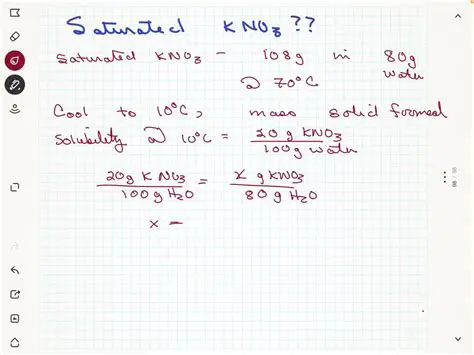 Saturated KNO3 ??
Saturated KNO3 - 108g in 80g water
@ 70°C
Cool to 10°C, mass solid formed
Solubility @ 10°C = 20 g KNO3 / 100 g water
20g KNO3 / 100 g H2O = x g KNO3 / 80 g H2O
x =